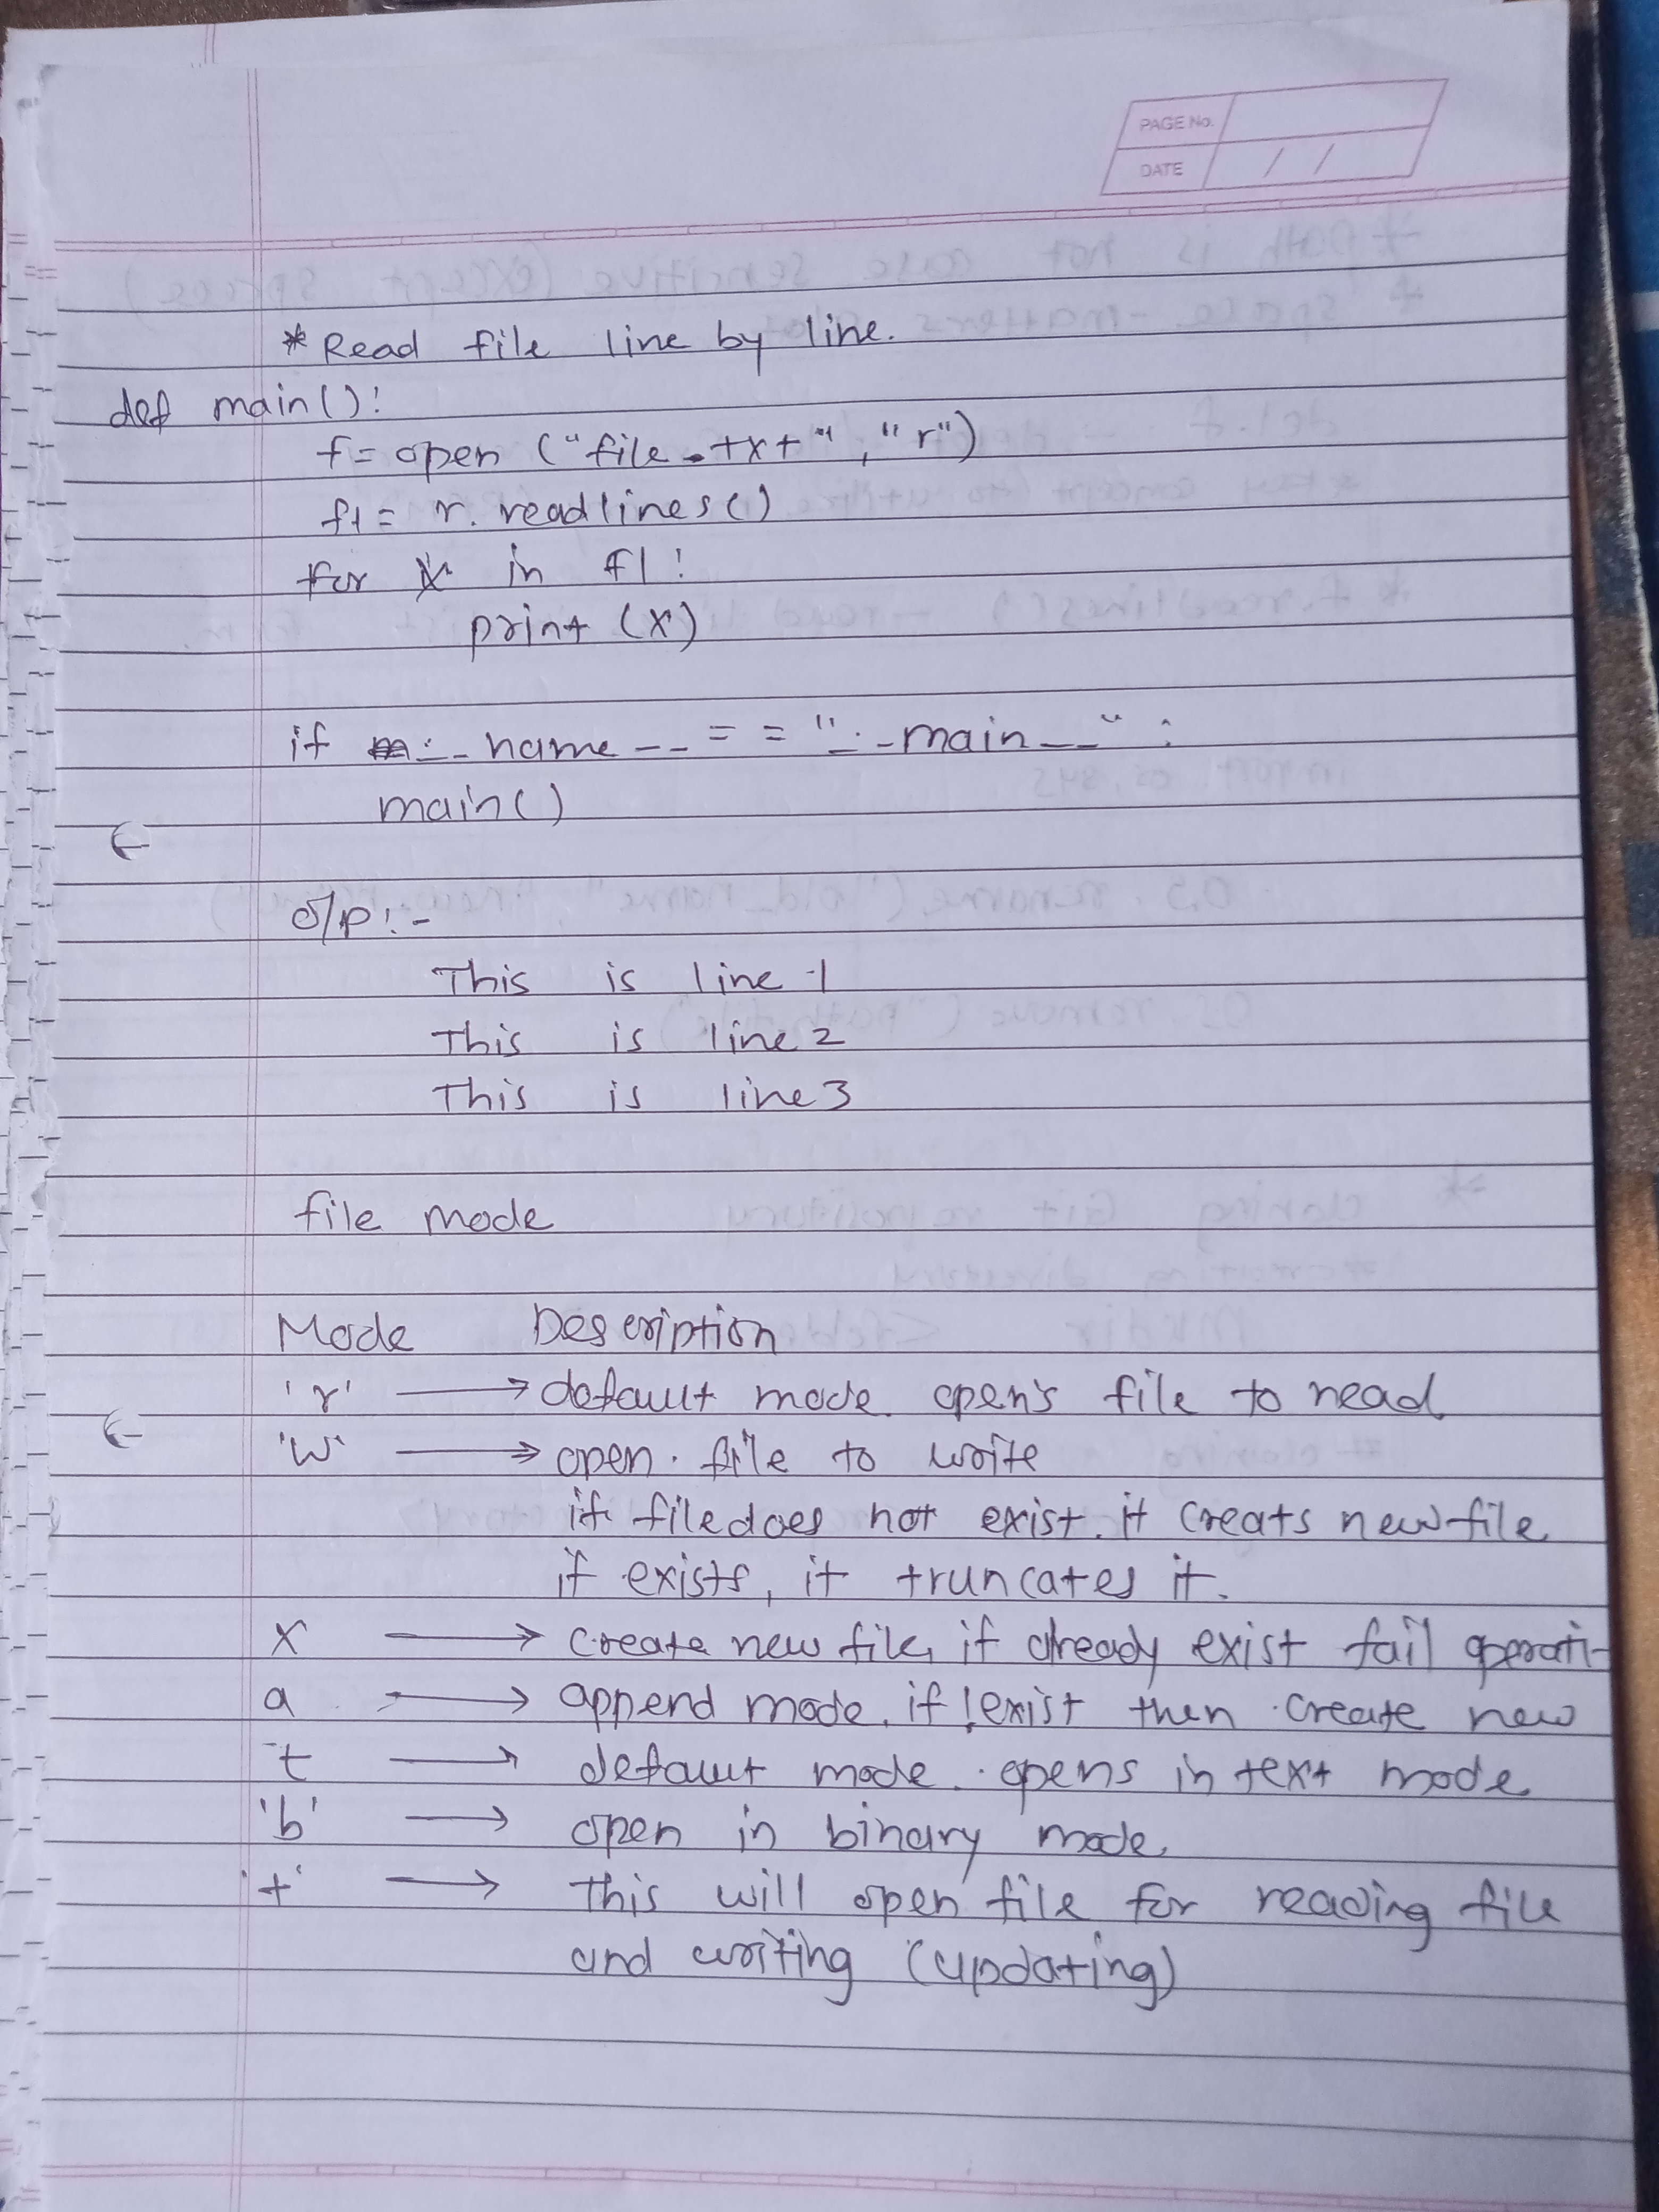 PAGE No.
DATE / /
* Read file line by line.
def main():
f = open ("file.txt", "r")
f1 = r. readlines()
for x in f1:
print (x)
if __name__ == "__main__":
main()
O/P:-
This is line 1
This is line 2
This is line 3
file mode
Mode Description
'r' → default mode. open's file to read
'w' → open file to write
if file does not exist. it creats new file
if exists, it truncates it.
x → create new file, if already exist fail operati-
a → append mode. if !exist then create new
't → default mode. opens in text mode.
'b' → open in binary mode.
'+' → This will open file for reading file
and writing (updating)